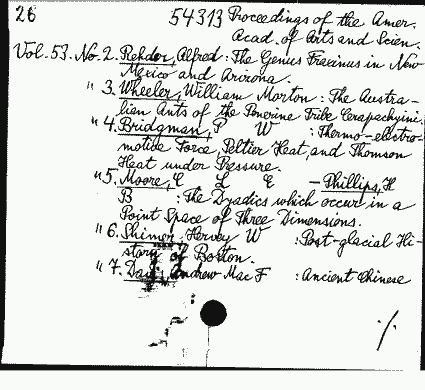 26 54313 Proceedings of the Amer.
Acad. of Arts and Scien.
Vol. 53. No. 2. Rehder, Alfred : The Genus Fraxinus in New
Mexico and Arizona.
" 3. Wheeler, William Morton : The Austra-
lian Ants of the Ponerine Tribe Cerapachyini.
" 4. Bridgman, P W : Thermo-electro-
motive Force, Peltier Heat, and Thomson
Heat under Pressure.
" 5. Moore, C L E - Phillips, H
B : The Dyadics which occur in a
Point Space of Three Dimensions.
" 6. Shimer, Hervey W : Post-glacial Hi-
story of Boston.
" 7. Andrew Mac F : Ancient Chinese